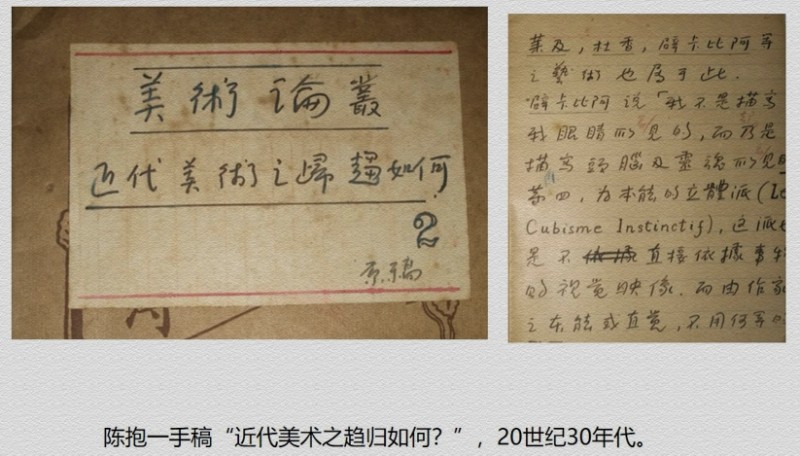 美術論叢
近代美術之歸趨如何
2
原稿
莱及，杜香，僻卡比阿等
之藝術也属于此.
僻卡比阿说「我不是描写
我眼睛所见的，而乃是
描写頭腦及靈魂所见
第四，为本能的立體派(Le
Cubisme Instinctif)，这派
是不直接依據事物
的視覚映像.而由作家
之本能或直覚，不用何等
陈抱一手稿“近代美术之趋归如何？”，20世纪30年代。